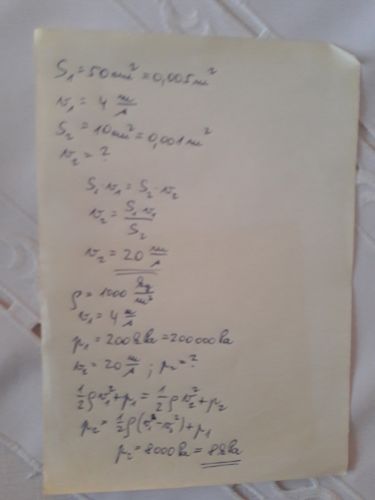 S₁ = 50 cm² = 0,005 m²
v₁ = 4 m/s
S₂ = 10 cm² = 0,001 m²
v₂ = ?
S₁ · v₁ = S₂ · v₂
v₂ = S₁ · v₁ / S₂
v₂ = 20 m/s
ρ = 1000 kg/m³
v₁ = 4 m/s
p₁ = 200 kPa = 200000 Pa
v₂ = 20 m/s ; p₂ = ?
1/2 ρ v₁² + p₁ = 1/2 ρ v₂² + p₂
p₂ = 1/2 ρ (v₁² - v₂²) + p₁
p₂ = 8000 Pa = 8 kPa